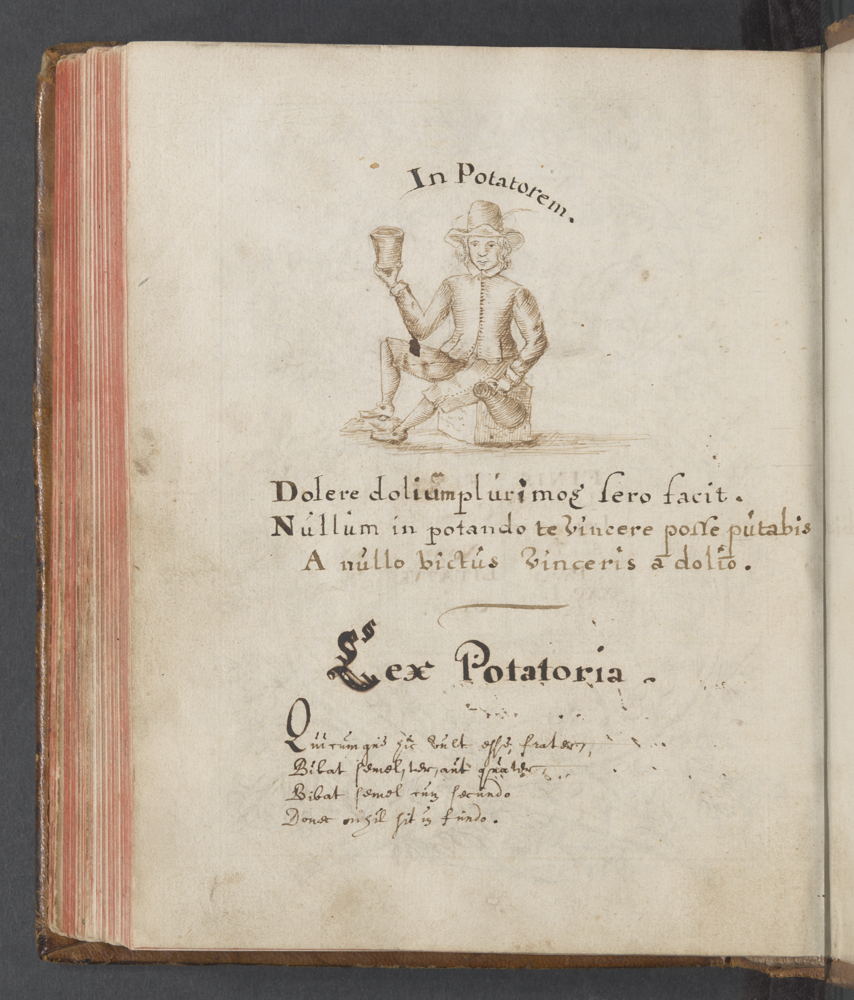 In Potatorem.
Dolere dolium plurimos sero facit.
Nullum in potando te vincere posse putabis
A nullo victus vinceris a dolio.
Lex Potatoria.
Quicumque hic vult esse frater,
Bibat semel, ter, aut quater,
Bibat semel cum secundo
Donec nihil sit in fundo.